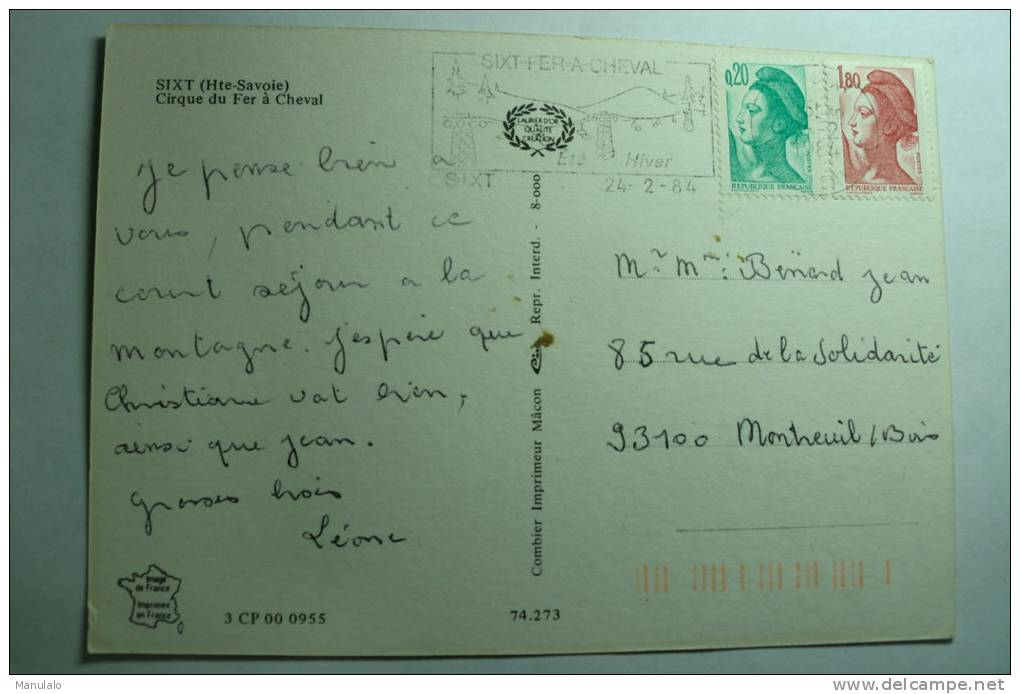 SIXT (Hte-Savoie)
Cirque du Fer à Cheval
Je pense bien à
vous, pendant ce
court séjour a la
montagne. J'espère que
Christiane vat bien,
ainsi que Jean.
grosses bises
Léone
Image
de France
Imprimée
en France
3 CP 00 0955
74.273
Combier Imprimeur Mâcon Cim Repr. Interd. - 8-000
LAURIER D'OR
DE
QUALITÉ
DE
CREATION
SIXT-FER-A-CHEVAL
Eté Hiver
SIXT
24-2-84
0,20
POSTES
REPUBLIQUE FRANÇAISE
1,80
POSTES
REPUBLIQUE FRANÇAISE
Mr Mme: Bénard Jean
85 rue de la Solidarité
93100 Montreuil/Bois
Manulalo
delcampe.net